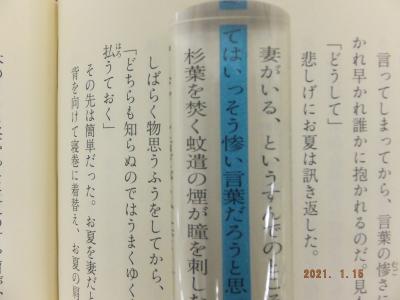 言ってしまってから、言葉の惨さに
むご
かれ早かれ誰かに抱かれるのだ。見
「どうして」
悲しげにお夏は訊き返した。
妻がいる、というすんでのところ
てはいっそう惨い言葉だろうと思
杉葉を焚く蚊遣の煙が瞳を刺した
しばらく物思うふうをしてから、
「どちらも知らぬのではうまくゆく
払うておく」
はろ
その先は簡単だった。お夏を妻だと
背を向けて寝巻に着替え、お夏の肩
2021. 1.15